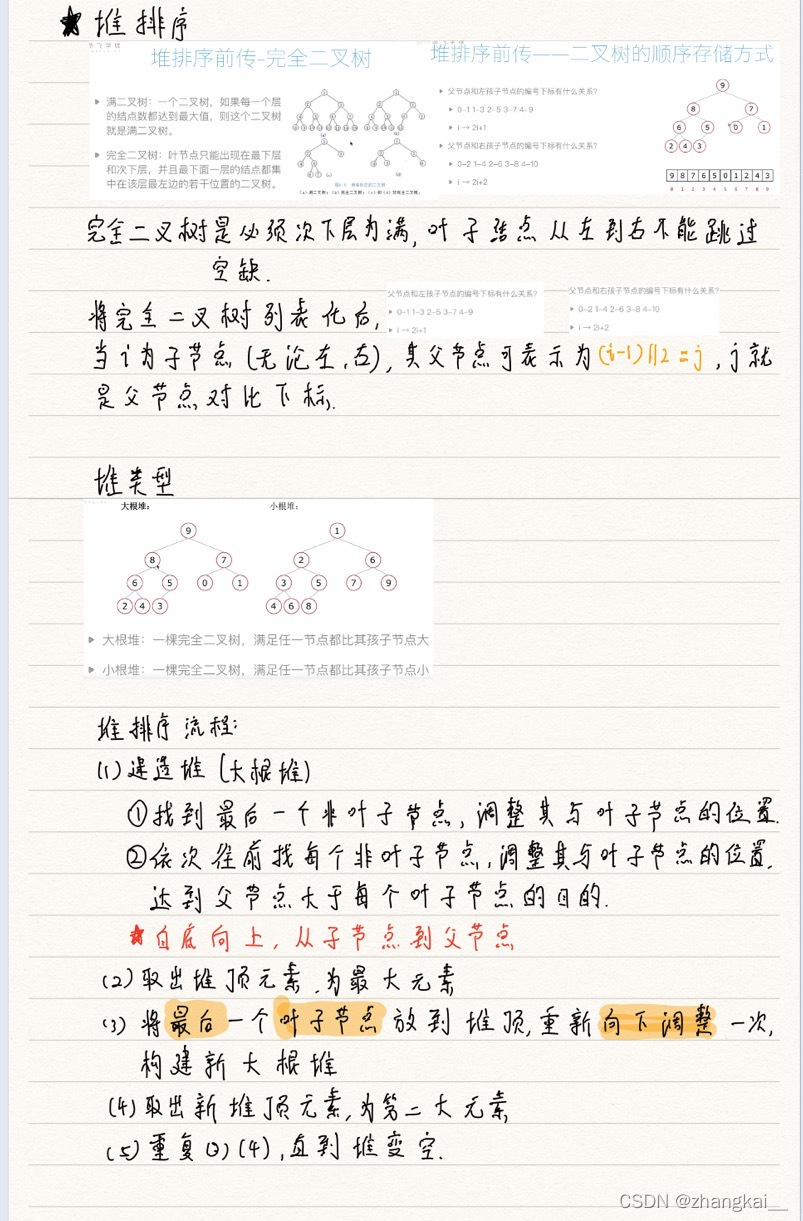 ★ 堆排序
堆排序前传-完全二叉树
满二叉树：一个二叉树，如果每一个层
的结点数都达到最大值，则这个二叉树
就是满二叉树。
完全二叉树：叶节点只能出现在最下层
和次下层，并且最下面一层的结点都集
中在该层最左边的若干位置的二叉树。
堆排序前传——二叉树的顺序存储方式
父节点和左孩子节点的编号下标有什么关系？
0-1 1-3 2-5 3-7 4-9
i → 2i+1
父节点和右孩子节点的编号下标有什么关系？
0-2 1-4 2-6 3-8 4-10
i → 2i+2
9
8 7
6 5 0 1
2 4 3
9 8 7 6 5 0 1 2 4 3
0 1 2 3 4 5 6 7 8 9
完全二叉树是必须次下层为满,叶子结点从左到右不能跳过
空缺.
将完全二叉树列表化后,
父节点和左孩子节点的编号下标有什么关系?
0-1 1-3 2-5 3-7 4-9
i → 2i+1
父节点和右孩子节点的编号下标有什么关系?
0-2 1-4 2-6 3-8 4-10
i → 2i+2
当i为子节点(无论左,右),其父节点可表示为(i-1)//2=j,j就
是父节点对比下标.
堆类型
大根堆：
9
8 7
6 5 0 1
2 4 3
小根堆：
1
2 6
3 5 7 9
4 6 8
大根堆：一棵完全二叉树，满足任一节点都比其孩子节点大
小根堆：一棵完全二叉树，满足任一节点都比其孩子节点小
堆排序流程:
(1)建造堆(大根堆)
①找到最后一个非叶子节点,调整其与叶子节点的位置.
②依次往前找每个非叶子节点,调整其与叶子节点的位置.
达到父节点大于每个叶子节点的目的.
★自底向上,从子节点到父节点
(2)取出堆顶元素,为最大元素
(3)将最后一个叶子节点放到堆顶,重新向下调整一次,
构建新大根堆
(4)取出新堆顶元素,为第二大元素
(5)重复(3)(4),直到堆变空.
CSDN @zhangkai__